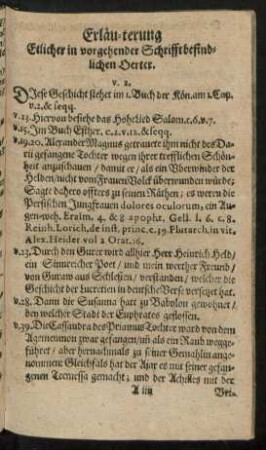 Erläu-terung
Etlicher in vorgehender Schrifft befind-
lichen Oerter.
v. 2.
DIese Geschicht stehet im 1. Buch der Kön. am 1. Cap.
v. 2. & seqq.
v. 15. Hiervon besihe das Hohelied Salom. c. 6. v. 7.
v. 15. Im Buch Esther. c. 2. v. 12. & seqq.
v. 19. 20. Alexander Magnus getrauete ihm nicht des Da-
rii gefangene Tochter wegen ihrer trefflichen Schön-
heit anzuschauen / damit er / als ein Uberwinder der
Helden / nicht vom Frauen Volck überwunden würde;
Sagte dahero öffters zu seinen Räthen; es weren die
Persischen Jungfrauen dolores oculorum, ein Au-
genweh. Erasm. 4. & 8 apopht. Gell. l. 6. c. 8.
Reinh. Lorich. de inst. princ. c. 39. Plutarch. in vit.
Alex. Heider. vol 2 Orat. 16.
v. 23. Durch den Gurer wird allhier Herr Heinrich Held /
ein Poet / und mein werther Freund /
von Guraw aus Schlesien / verstanden / welcher die
Geschicht der Lucretien in deutsche Verse versetzet hat.
v. 28. Dann die Susanna hatt zu Babylon gewohnet /
bey welcher Stadt der Euphrates geflossen.
v. 39. Die Cassandra des Priamus Tochter ward von dem
Agemennon zwar gefangen / uñ als ein Raub wegge-
führet / aber hernachmals zu seiner Gemahlin ange-
nommen: Gleichfals hat der Ajax es mit seiner gefan-
genen Tecmessa gemacht; und der Achilles mit der
A iiij
Bri-